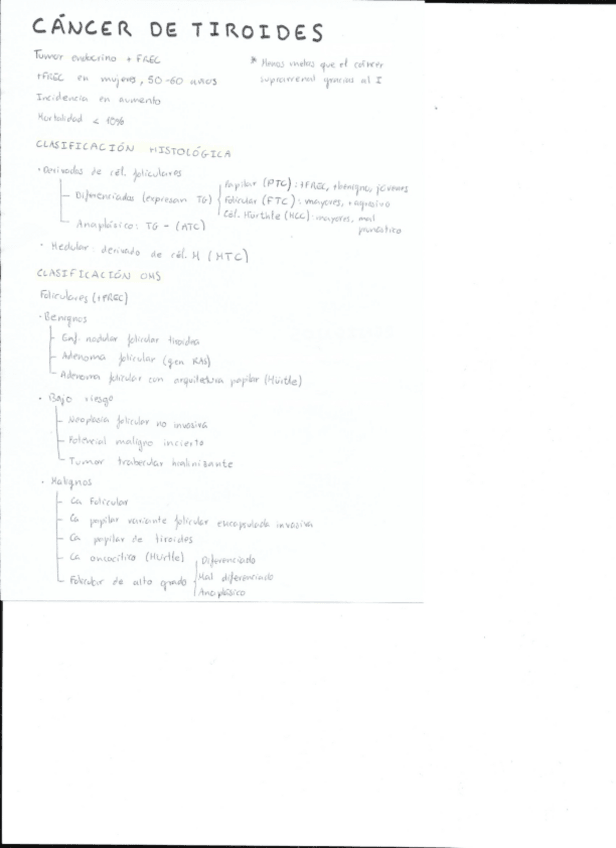 CÁNCER DE TIROIDES
Tumor endocrino + FREC
* Menos metas que el cáncer
suprarrenal gracias al I
+FREC en mujeres, 50-60 años
Incidencia en aumento
Mortalidad < 10%
CLASIFICACIÓN HISTOLÓGICA
· Derivados de cél. foliculares
Diferenciados (expresan TG)
Papilar (PTC): +FREC, +benigno, jóvenes
Folicular (FTC): mayores, +agresivo
Cél. Hürthle (HCC): mayores, mal
pronóstico
Anaplásico: TG - (ATC)
· Medular: derivado de cél. M (MTC)
CLASIFICACIÓN OMS
Foliculares (+FREC)
· Benignos
Enf. nodular folicular tiroidea
Adenoma folicular (gen RAS)
Adenoma folicular con arquitectura papilar (Hürtle)
· Bajo riesgo
Neoplasia folicular no invasiva
Potencial maligno incierto
Tumor trabecular hialinizante
· Malignos
Ca Folicular
Ca papilar variante folicular encapsulada invasiva
Ca papilar de tiroides
Ca oncocítico (Hürtle)
Folicular de alto grado
Diferenciado
Mal diferenciado
Anaplásico